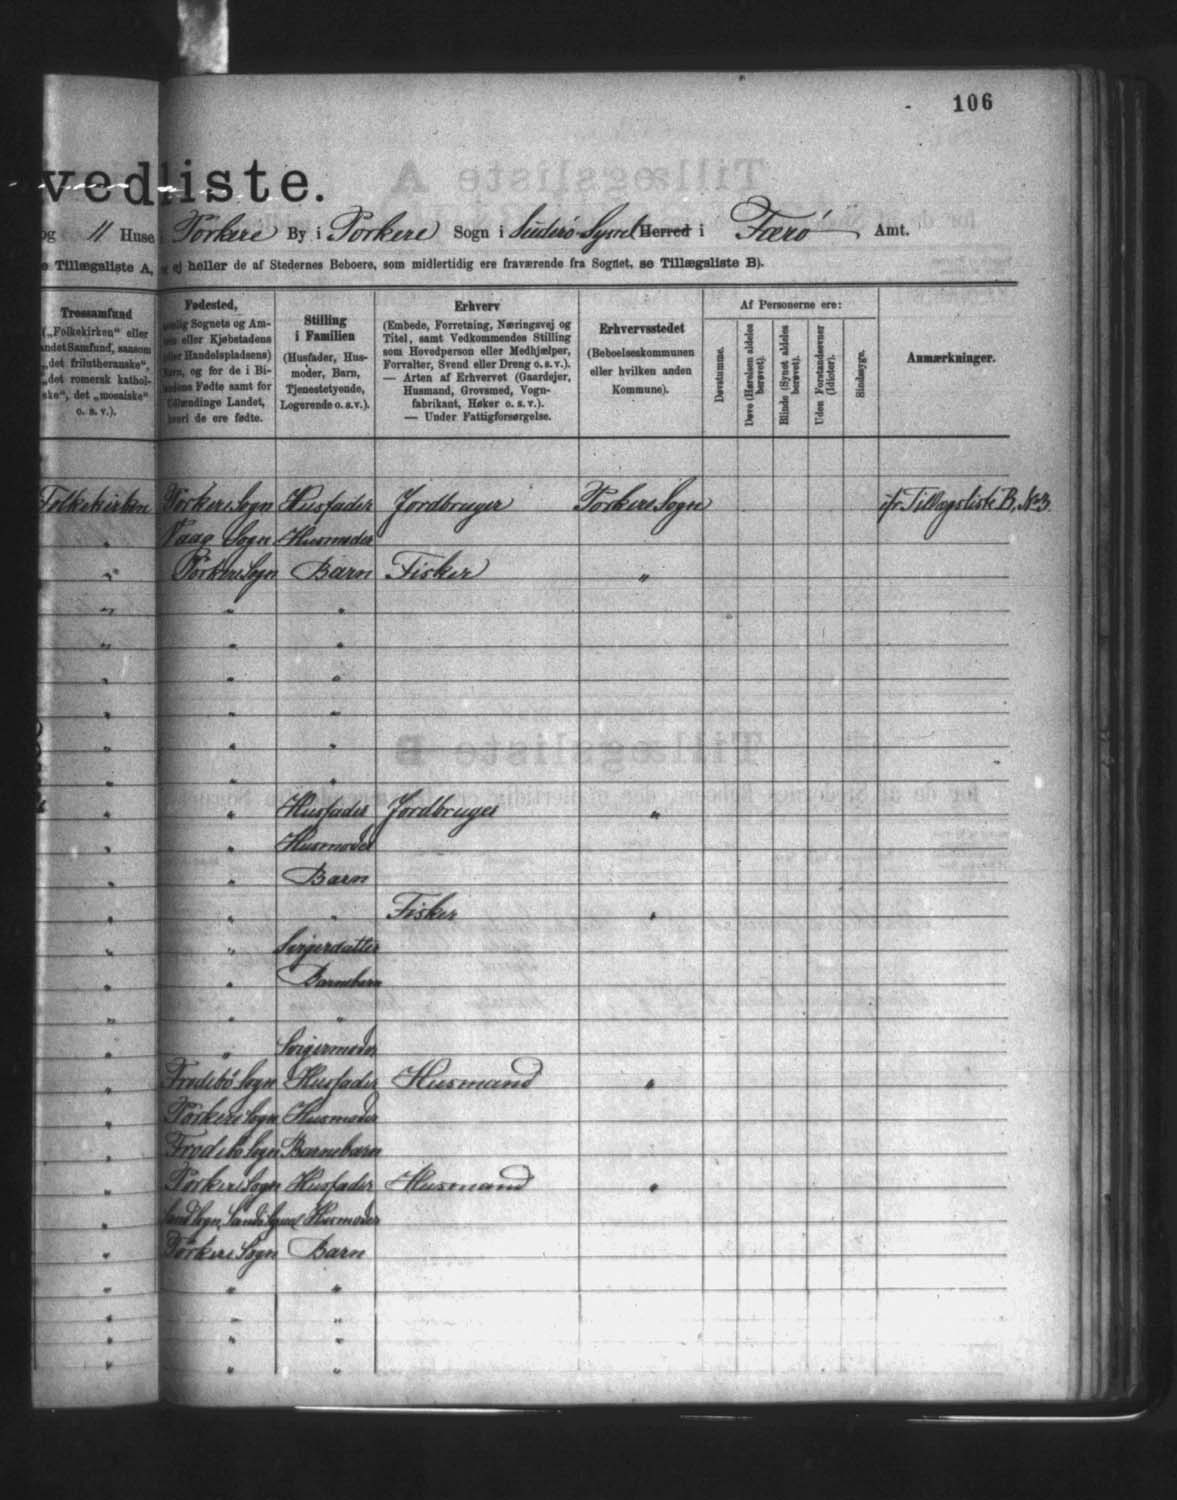 106
vedliste.
og 11 Huse i Porkere By i Porkere Sogn i Suderø Syssel Herred i Færø Amt.
e Tillægsliste A, ej heller de af Stedernes Beboere, som midlertidig ere fraværende fra Sognet, se Tillægsliste B).
Trossamfund
(„Folkekirken“ eller
andet Samfund, saasom
„det frilutheranske“,
„det romersk kathol-
ske“, det „mosaiske“
o. s. v.).
Fødested,
Sognets og Am-
eller Kjøbstadens
Handelspladsens)
og for de i Bi-
Fødte samt for
Udlændinge Landet,
hvori de ere fødte.
Stilling
i Familien
(Husfader, Hus-
moder, Barn,
Tjenestetyende,
Logerende o. s. v.).
Erhverv
(Embede, Forretning, Næringsvej og
Titel, samt Vedkommendes Stilling
som Hovedperson eller Medhjælper,
Forvalter, Svend eller Dreng o. s. v.).
— Arten af Erhvervet (Gaardejer,
Husmand, Grovsmed, Vogn-
fabrikant, Høker o. s. v.).
— Under Fattigforsørgelse.
Erhvervsstedet
(Beboelseskommunen
eller hvilken anden
Kommune).
Af Personerne ere:
Døvstumme.
Døve (Hørelsen aldeles berøvet).
Blinde (Synet aldeles berøvet).
Uden Forstandsevner (Idioter).
Sindssyge.
Anmærkninger.
Folkekirken Porkere Sogn Husfader Jordbruger Porkere Sogn cfr. Tillægsliste B, No 3.
" Vaag Sogn Husmoder
" Porkere Sogn Barn Fisker "
" " "
" " "
" " "
" " "
" " "
" " "
" " Husfader Jordbruger "
" " Husmoder
" " Barn
" " " Fisker "
" " Svigerdatter
" " Barnebarn
" " "
" " Svigermoder
" Frodebø Sogn Husfader Husmand "
" Porkere Sogn Husmoder
" Frodebø Sogn Barnebarn
" Porkere Sogn Husfader Husmand "
" Sand Sogn, Sandø Syssel Husmoder
" Porkere Sogn Barn
" " "
" " "
" " "
" " "